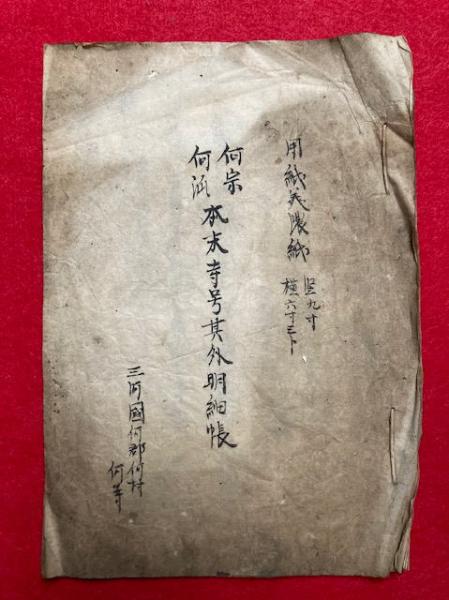 用紙美濃紙
竪九寸
横六寸三卜
何宗
何派
本末寺号其外明細帳
三河國何郡何村
何寺